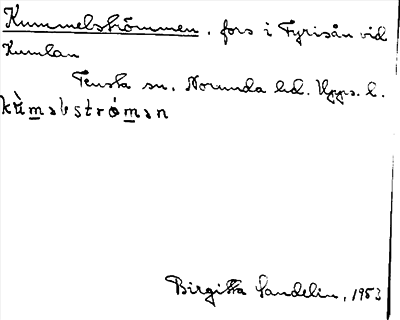 Kummelströmmen, fors i Fyrisån vid
Kumlan
Tensta sn. Norunda hd. Upps. l.
kùməlströ́mən
Birgitta Sandelin, 1953